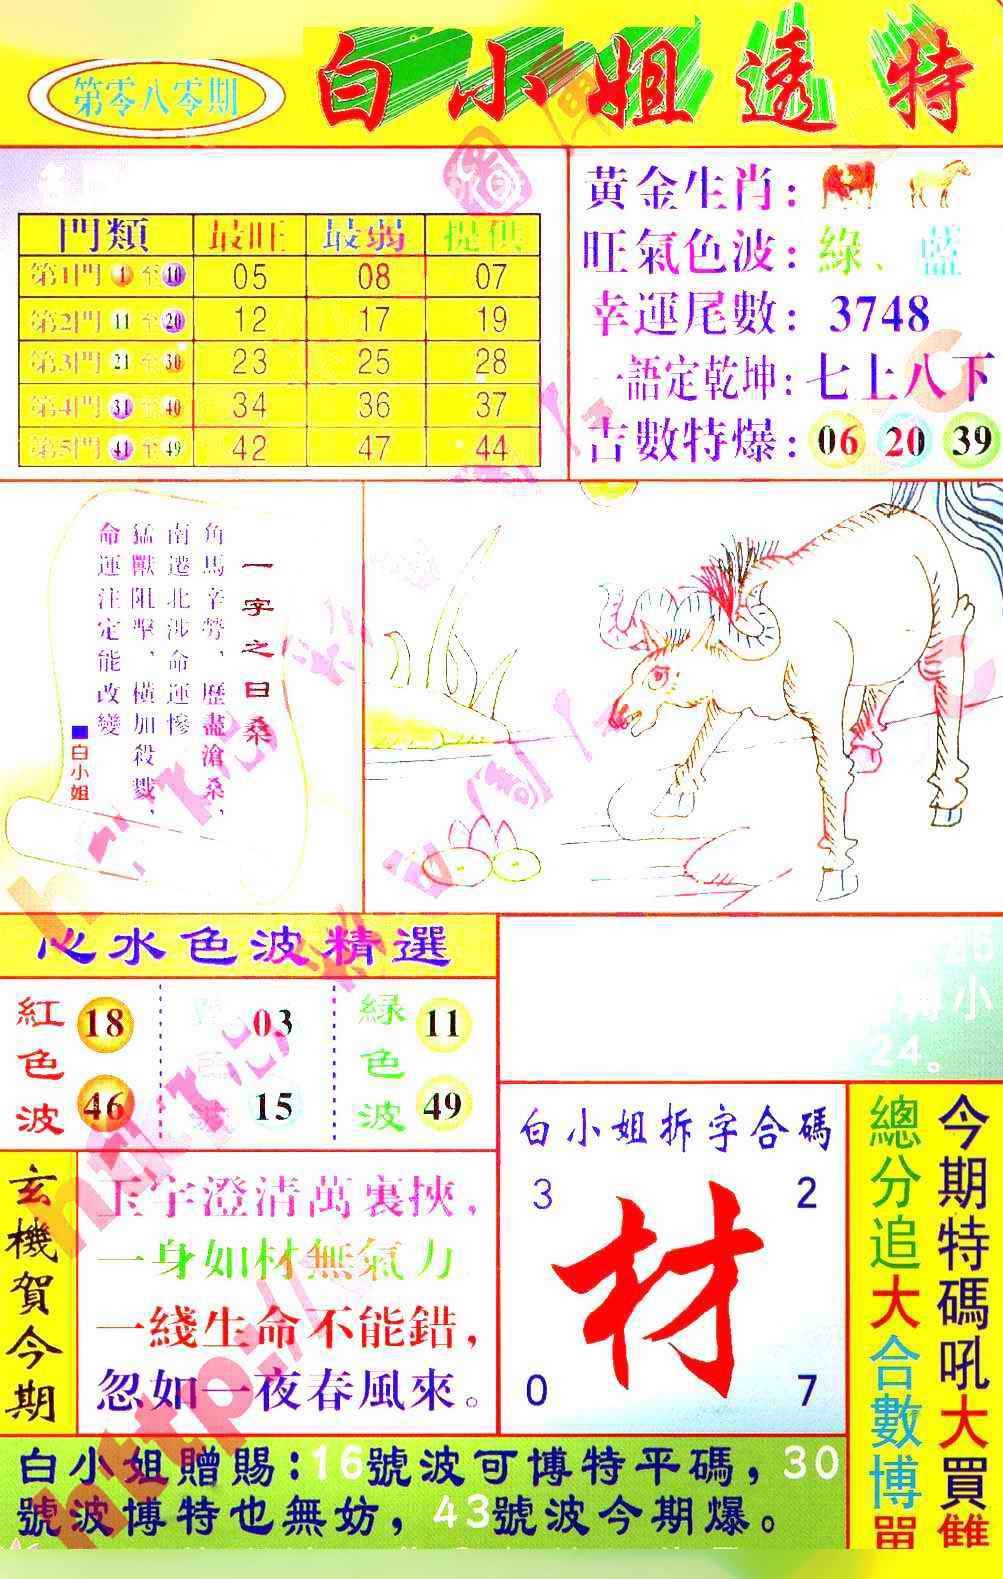 第零八零期
白小姐透特
門類 最旺 最弱 提供
第1門 1 至 10 05 08 07
第2門 11 至 20 12 17 19
第3門 21 至 30 23 25 28
第4門 31 至 40 34 36 37
第5門 41 至 49 42 47 44
黃金生肖:
旺氣色波: 綠、藍
幸運尾數: 3748
一語定乾坤: 七上八下
吉數特爆: 06 20 39
一字之曰桑
角馬辛勞、歷盡滄桑,
南遷北涉命運慘
猛獸阻擊、橫加殺戮,
命運注定能改變
■白小姐
心水色波精選
紅色波 18 46
03 15
綠色波 11 49
25
小
24。
玄機賀今期
玉宇澄清萬裏挾,
一身如材無氣力
一綫生命不能錯,
忽如一夜春風來。
白小姐拆字合碼
3 2
材
0 7
今期特碼吼大買雙
總分追大合數博單
白小姐贈賜:16號波可博特平碼,30
號波博特也無妨,43號波今期爆。